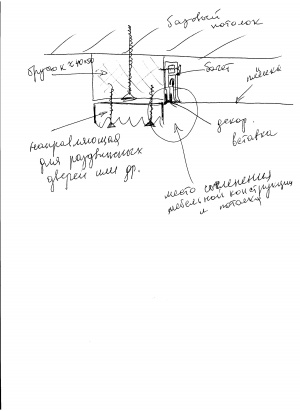 базовый
потолок
брусок 40х50
багет
плёнка
декор.
вставка
направляющая
для раздвижных
дверей или др.
место сочленения
мебельной конструкции
и потолка